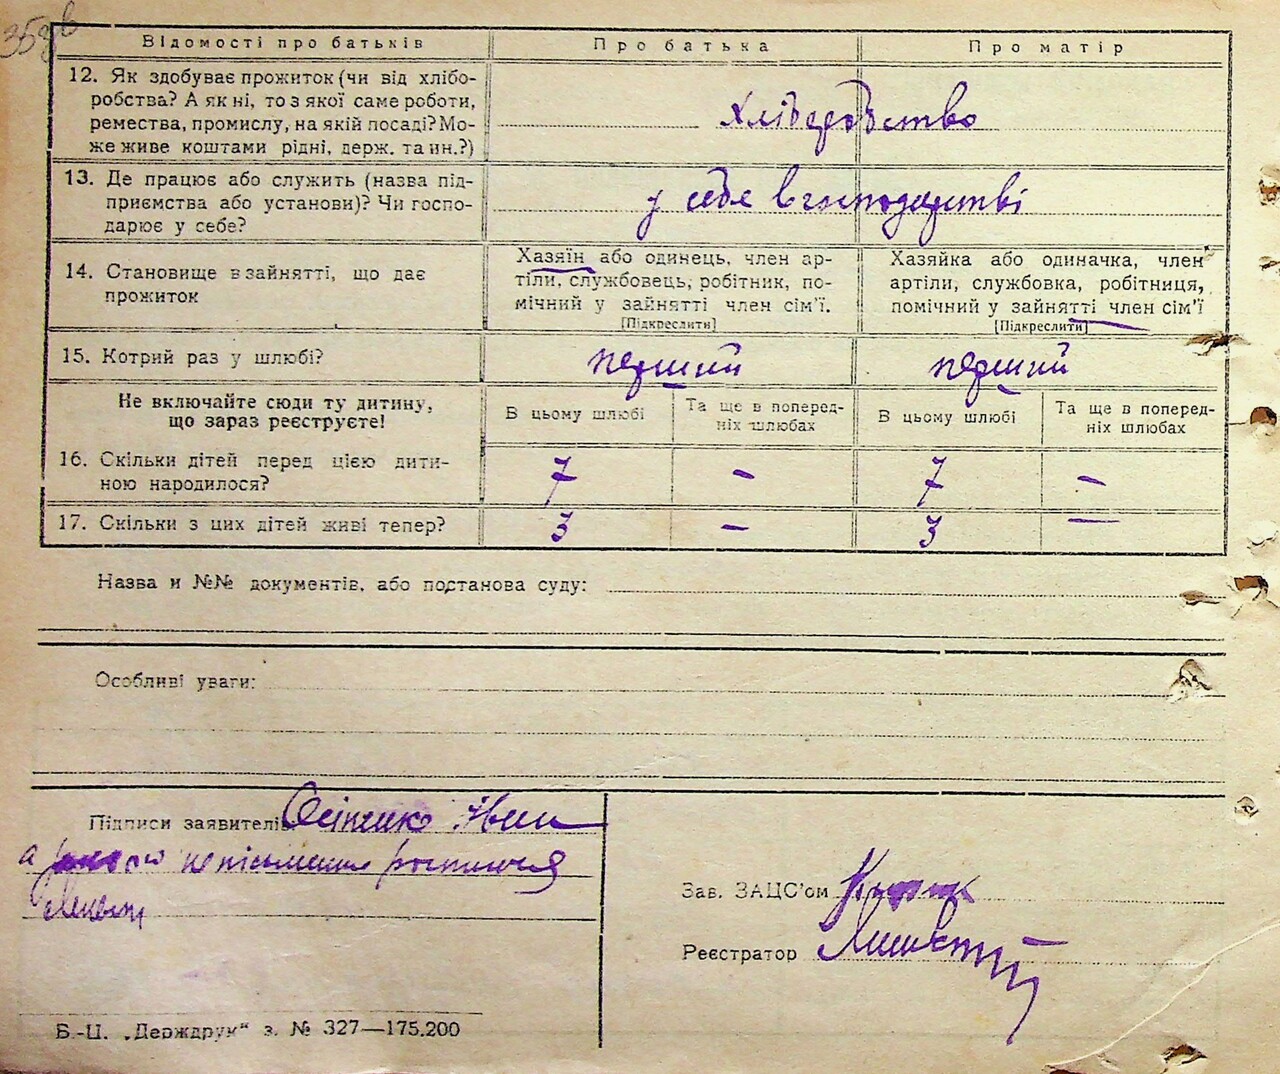 Відомості про батьків	Про батька	Про матір
12. Як здобуває прожиток (чи від хлібо-
робства? А як ні, то з якої саме роботи,
ремества, промислу, на якій посаді? Мо-
же живе коштами рідні, держ. та ин.?)
хліборобство
13. Де працює або служить (назва під-
приємства або установи)? Чи госпо-
дарює у себе?
у себе в господарстві
14. Становище в зайнятті, що дає
прожиток
Хазяїн або одинець, член ар-
тіли, службовець, робітник, по-
мічний у зайнятті член сім'ї.
[Підкреслити]
Хазяйка або одиначка, член
артіли, службовка, робітниця,
помічний у зайнятті член сім'ї
[Підкреслити]
15. Котрий раз у шлюбі?	перший	перший
Не включайте сюди ту дитину,
що зараз реєструєте!
В цьому шлюбі	Та ще в поперед-
ніх шлюбах	В цьому шлюбі	Та ще в поперед-
ніх шлюбах
16. Скільки дітей перед цією дити-
ною народилося?
7	–	7	–
17. Скільки з цих дітей живі тепер?	3	–	3	–
Назва и №№ документів, або постанова суду:
Особливі уваги:
Підписи заявителів
Іван
а
Зав. ЗАЦС'ом
Реєстратор
Б.-Ц. „Держдрук“ з. № 327—175.200